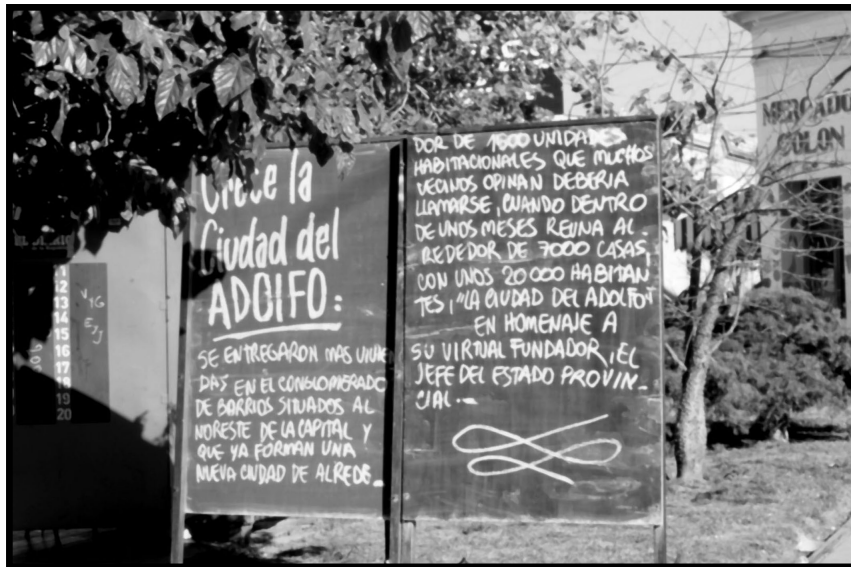 Crece la
Ciudad del
ADOLFO:
SE ENTREGARON MAS VIVIEN
DAS EN EL CONGLOMERADO
DE BARRIOS SITUADOS AL
NORESTE DE LA CAPITAL Y
QUE YA FORMAN UNA
NUEVA CIUDAD DE ALREDE-
DOR DE 1600 UNIDADES
HABITACIONALES QUE MUCHOS
VECINOS OPINAN DEBERIA
LLAMARSE, CUANDO DENTRO
DE UNOS MESES REUNA AL
REDEDOR DE 7000 CASAS,
CON UNOS 20000 HABITAN
TES, "LA CIUDAD DEL ADOLFO"
EN HOMENAJE A
SU VIRTUAL FUNDADOR, EL
JEFE DEL ESTADO PROVIN-
CIAL.-
MERCADO
COLON
11
12
13
14
15
16
17
18
19
20